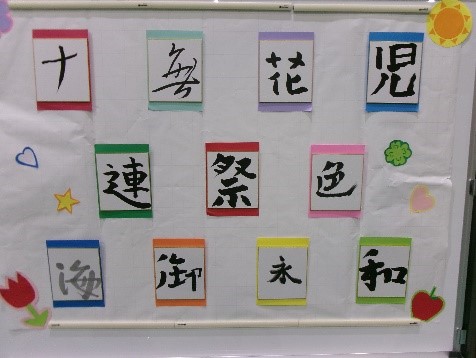 十 無 花 児
連 祭 色
海 御 永 和